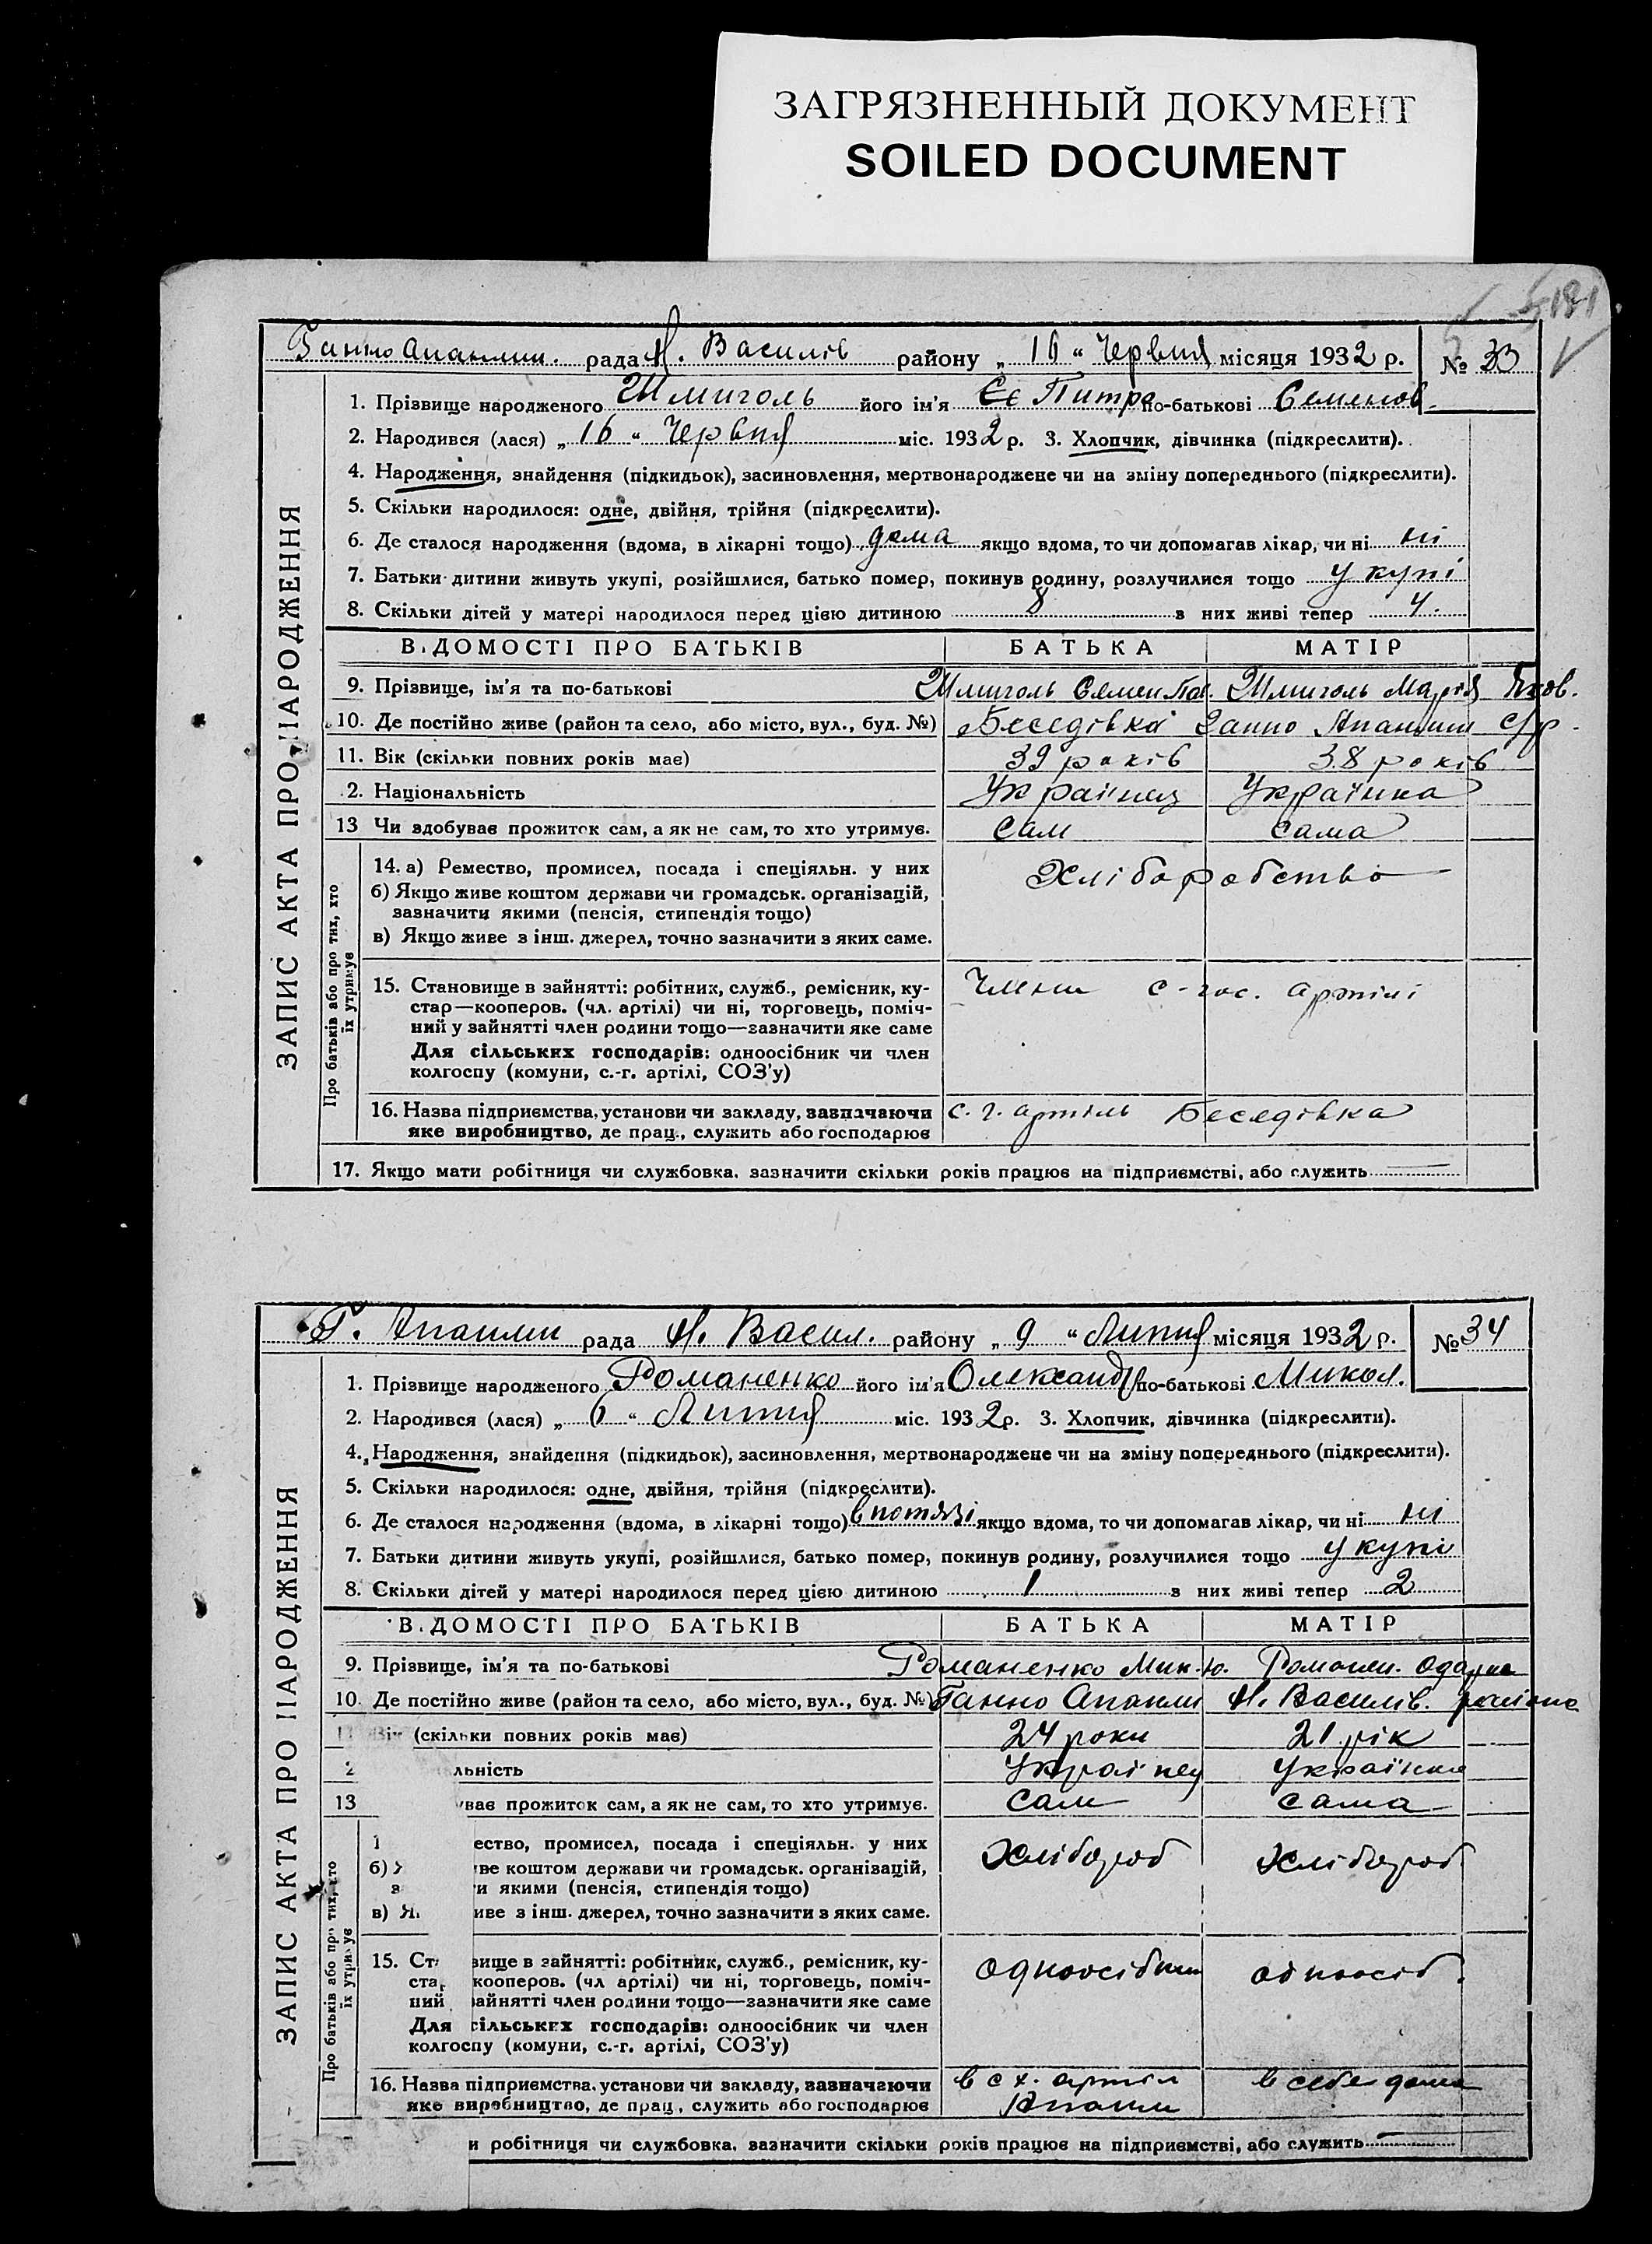 ЗАГРЯЗНЕННЫЙ ДОКУМЕНТ
SOILED DOCUMENT
181
рада Н. Василів району „ 16 “ Червня місяця 1932 р. № 33
1. Прізвище народженого Шмиголь його ім'я Петро по-батькові Семенов.
2. Народився (лася) „ 16 “ Червня міс. 1932 р. 3. Хлопчик, дівчинка (підкреслити).
4. Народження, знайдення (підкидьок), засиновлення, мертвонароджене чи на зміну попереднього (підкреслити).
5. Скільки народилося: одне, двійня, трійня (підкреслити).
6. Де сталося народження (вдома, в лікарні тощо) дома якщо вдома, то чи допомагав лікар, чи ні ні
7. Батьки дитини живуть укупі, розійшлися, батько помер, покинув родину, розлучилися тощо укупі
8. Скільки дітей у матері народилося перед цією дитиною 8 з них живі тепер 4.
ЗАПИС АКТА ПРО НАРОДЖЕННЯ
В.ДОМОСТІ ПРО БАТЬКІВ БАТЬКА МАТІР
9. Прізвище, ім'я та по-батькові Шмиголь Семен Шмиголь Марія Яков.
10. Де постійно живе (район та село, або місто, вул., буд. №) Беседівка Ганно с/р.
11. Вік (скільки повних років має) 39 років 38 років
2. Національність Українец Українка
13 Чи здобуває прожиток сам, а як не сам, то хто утримує. Сам сама
Про батьків або про тих, хто їх утримує
14. а) Ремество, промисел, посада і спеціяльн. у них Хліборобство
б) Якщо живе коштом держави чи громадськ. організацій,
зазначити якими (пенсія, стипендія тощо)
в) Якщо живе з інш. джерел, точно зазначити з яких саме.
15. Становище в зайнятті: робітник, служб., ремісник, ку- Члени с-гос. артілі
стар—кооперов. (чл. артілі) чи ні, торговець, поміч-
ний у зайнятті член родини тощо—зазначити яке саме
Для сільських господарів: одноосібник чи член
колгоспу (комуни, с.-г. артілі, СОЗ'у)
16. Назва підприємства, установи чи закладу, зазначаючи с. г. артіль Беседівка
яке виробництво, де прац., служить або господарює
17. Якщо мати робітниця чи службовка, зазначити скільки років працює на підприємстві, або служить —
Г. рада Н. Васил. району „ 9 “ Липня місяця 1932 р. № 34
1. Прізвище народженого Романенко його ім'я Олександр по-батькові Микол.
2. Народився (лася) „ 6 “ Липня міс. 1932 р. 3. Хлопчик, дівчинка (підкреслити).
4. Народження, знайдення (підкидьок), засиновлення, мертвонароджене чи на зміну попереднього (підкреслити).
5. Скільки народилося: одне, двійня, трійня (підкреслити).
6. Де сталося народження (вдома, в лікарні тощо) в потязі якщо вдома, то чи допомагав лікар, чи ні ні
7. Батьки дитини живуть укупі, розійшлися, батько помер, покинув родину, розлучилися тощо укупі
8. Скільки дітей у матері народилося перед цією дитиною 1 з них живі тепер 2
ЗАПИС АКТА ПРО НАРОДЖЕННЯ
В.ДОМОСТІ ПРО БАТЬКІВ БАТЬКА МАТІР
9. Прізвище, ім'я та по-батькові Романенко Мик. Ю. Романен. Одарка
10. Де постійно живе (район та село, або місто, вул., буд. №) Ганно Н. Василів. району
11 Вік (скільки повних років має) 24 роки 21 рік
2 льність Українец Українка
13 ував прожиток сам, а як не сам, то хто утримує. Сам сама
Про батьків або про тих, хто їх утримує
1 ество, промисел, посада і спеціяльн. у них Хлібороб Хлібороб
б) Я ве коштом держави чи громадськ. організацій,
за ти якими (пенсія, стипендія тощо)
в) Як иве з інш. джерел, точно зазначити з яких саме.
15. Ста вище в зайнятті: робітник, служб., ремісник, ку- одноосібник одноосіб.
стар кооперов. (чл артілі) чи ні, торговець, поміч-
ний зайнятті член родини тощо—зазначити яке саме
Для сільських господарів: одноосібник чи член
колгоспу (комуни, с.-г. артілі, СОЗ'у)
16. Назва підприємства, установи чи закладу, зазначаючи в с х. артіл в себе дома
яке виробництво, де прац., служить або господарює
и робітниця чи службовка, зазначити скільки років працює на підприємстві, або служить —